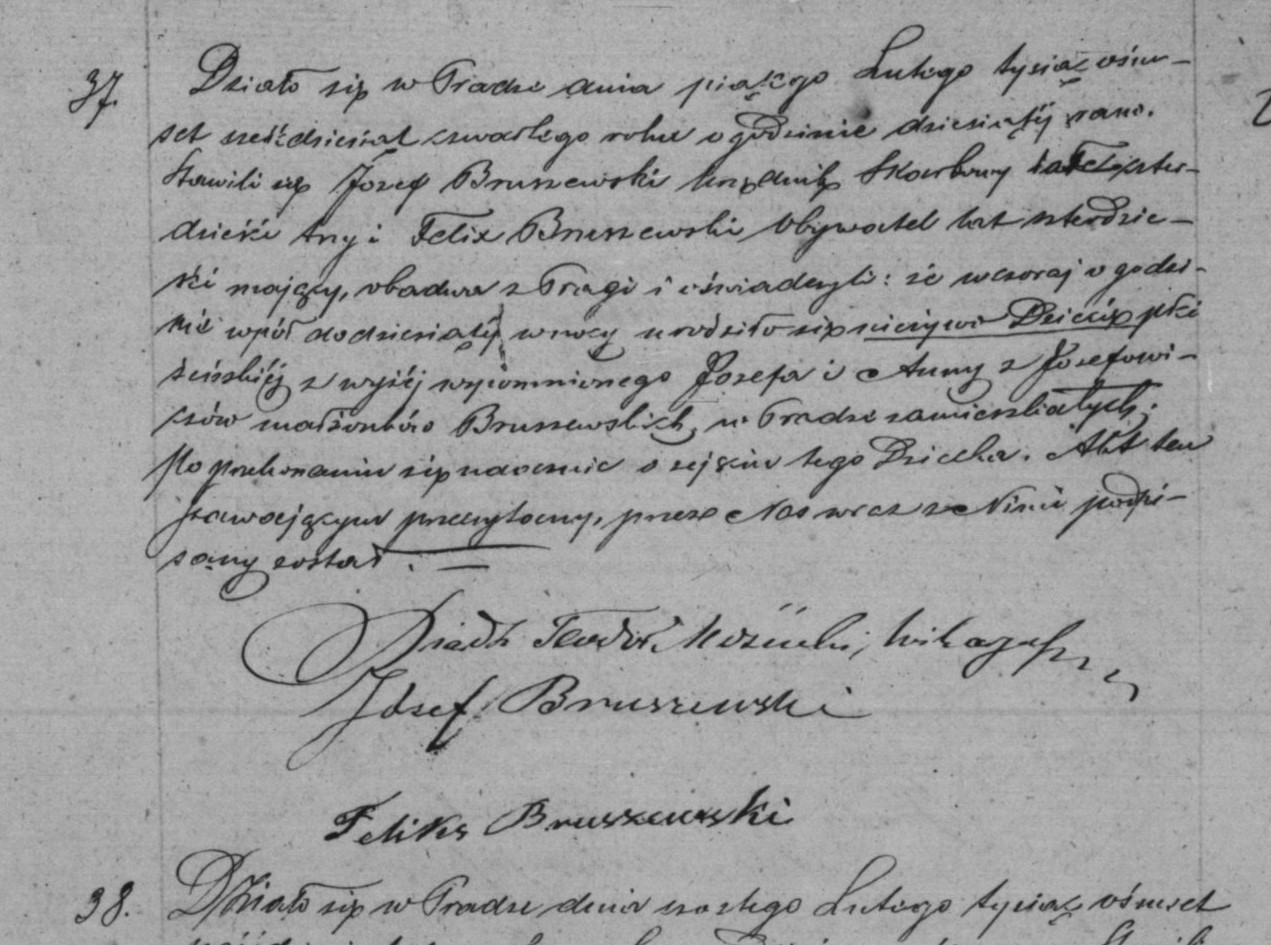 37.
Działo się w Pradze dnia piątego Lutego tysiąc ośm-
set sześćdziesiąt czwartego roku o godzinie dziesiątéj rano.
Stawili się Jozef Bruszewski Urzędnik Skarbowy lat czter-
dzieści trzy i Felix Bruszewski, Obywatel lat czterdzie-
ści mający, obadwa z Pragi i oświadczyli: że wczoraj o godzi-
nie wpół do dziesiątéj w nocy urodziło się nieżywe Dziecię płci
żeńskiéj z wyżéj wspomnionego Jozefa i Anny z Jozefowi-
czów małżonków Bruszewskich, w Pradze zamieszkałych;
Po przekonaniu się naocznie o zejściu tego Dziecka. Akt ten
stawającym przeczytany, przez Nas wraz z Nimi podpi-
sany został. —
Xiądz Teodor
Józef Bruszewski
Feliks Bruszewski
38. Działo się w Pradze dnia szostego Lutego tysiąc ośmset